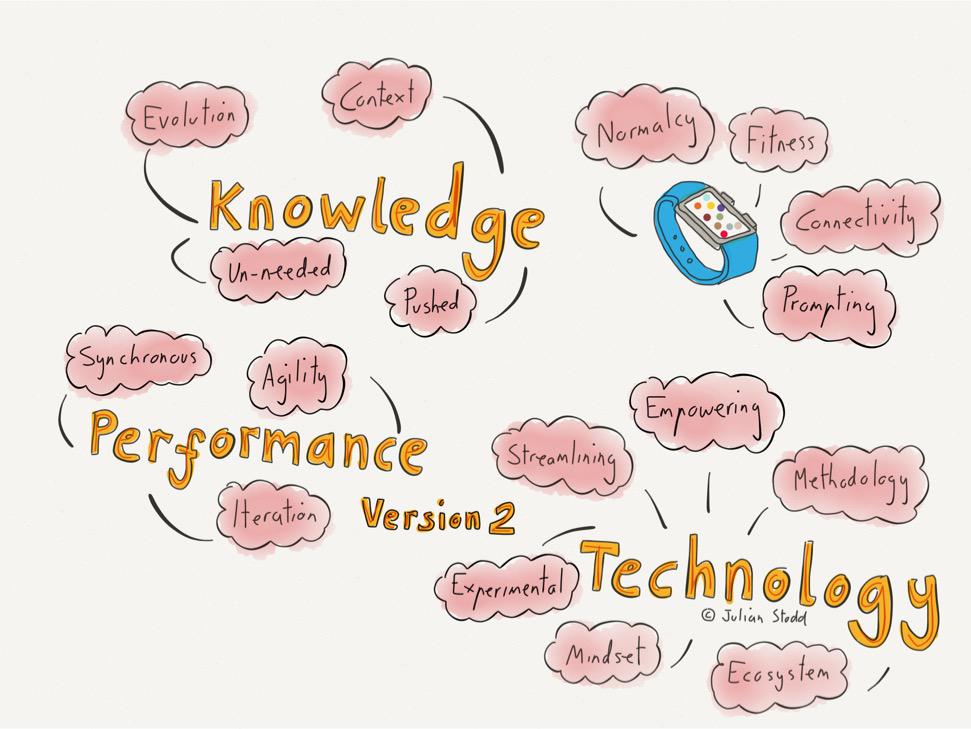 Evolution
Context
Knowledge
Un-needed
Pushed
Normalcy
Fitness
Connectivity
Prompting
Synchronous
Agility
Performance
Iteration
Version 2
Empowering
Streamlining
Methodology
Experimental
Technology
© Julian Stodd
Mindset
Ecosystem